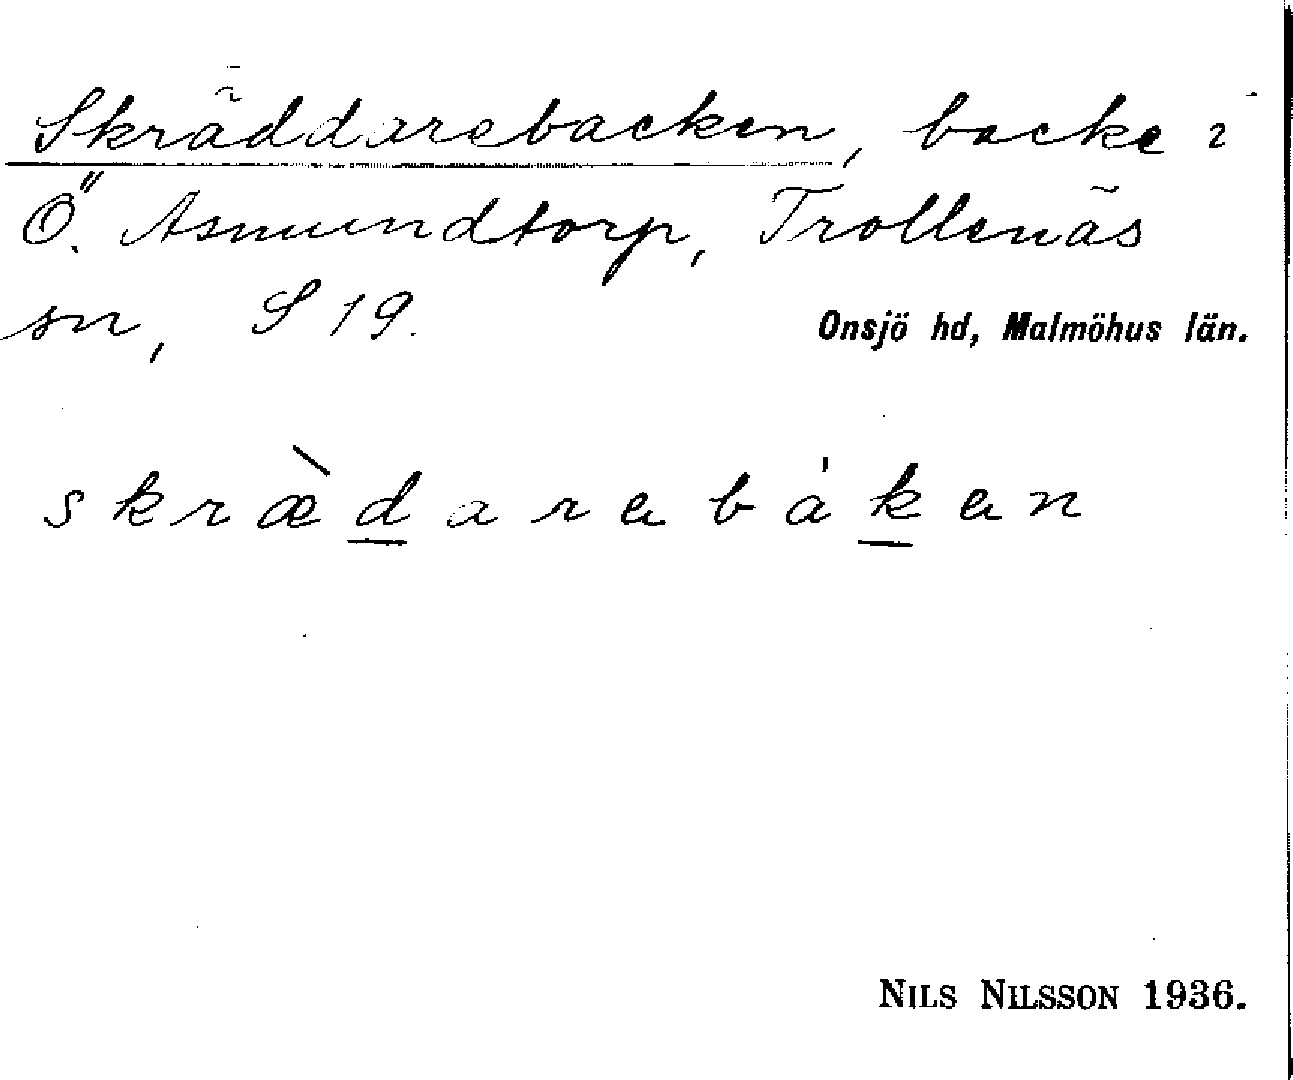 Skräddarebacken, backe i
Ö. Asmundtorp, Trollenäs
sn, S 19. Onsjö hd, Malmöhus län.
skræ̀d̲arebák̲en
NILS NILSSON 1936.